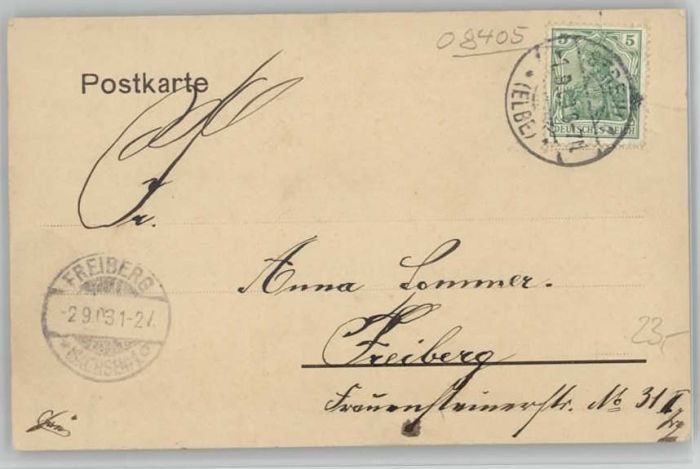 08405
5 5
DEUTSCHES REICH
(ELBE)
Postkarte
Fr.
Anna Sommer.
Freiberg
Frauensteinerstr. No 31 II
FREIBERG
-2.9.03.1-2N.
(SACHSEN)
23,-